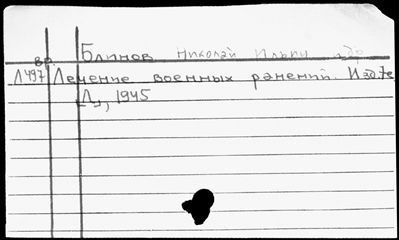 Блинов Николай Ильич и др.
вр.
Л497 Лечение военных ранений. Изд. 7е
Л., 1945